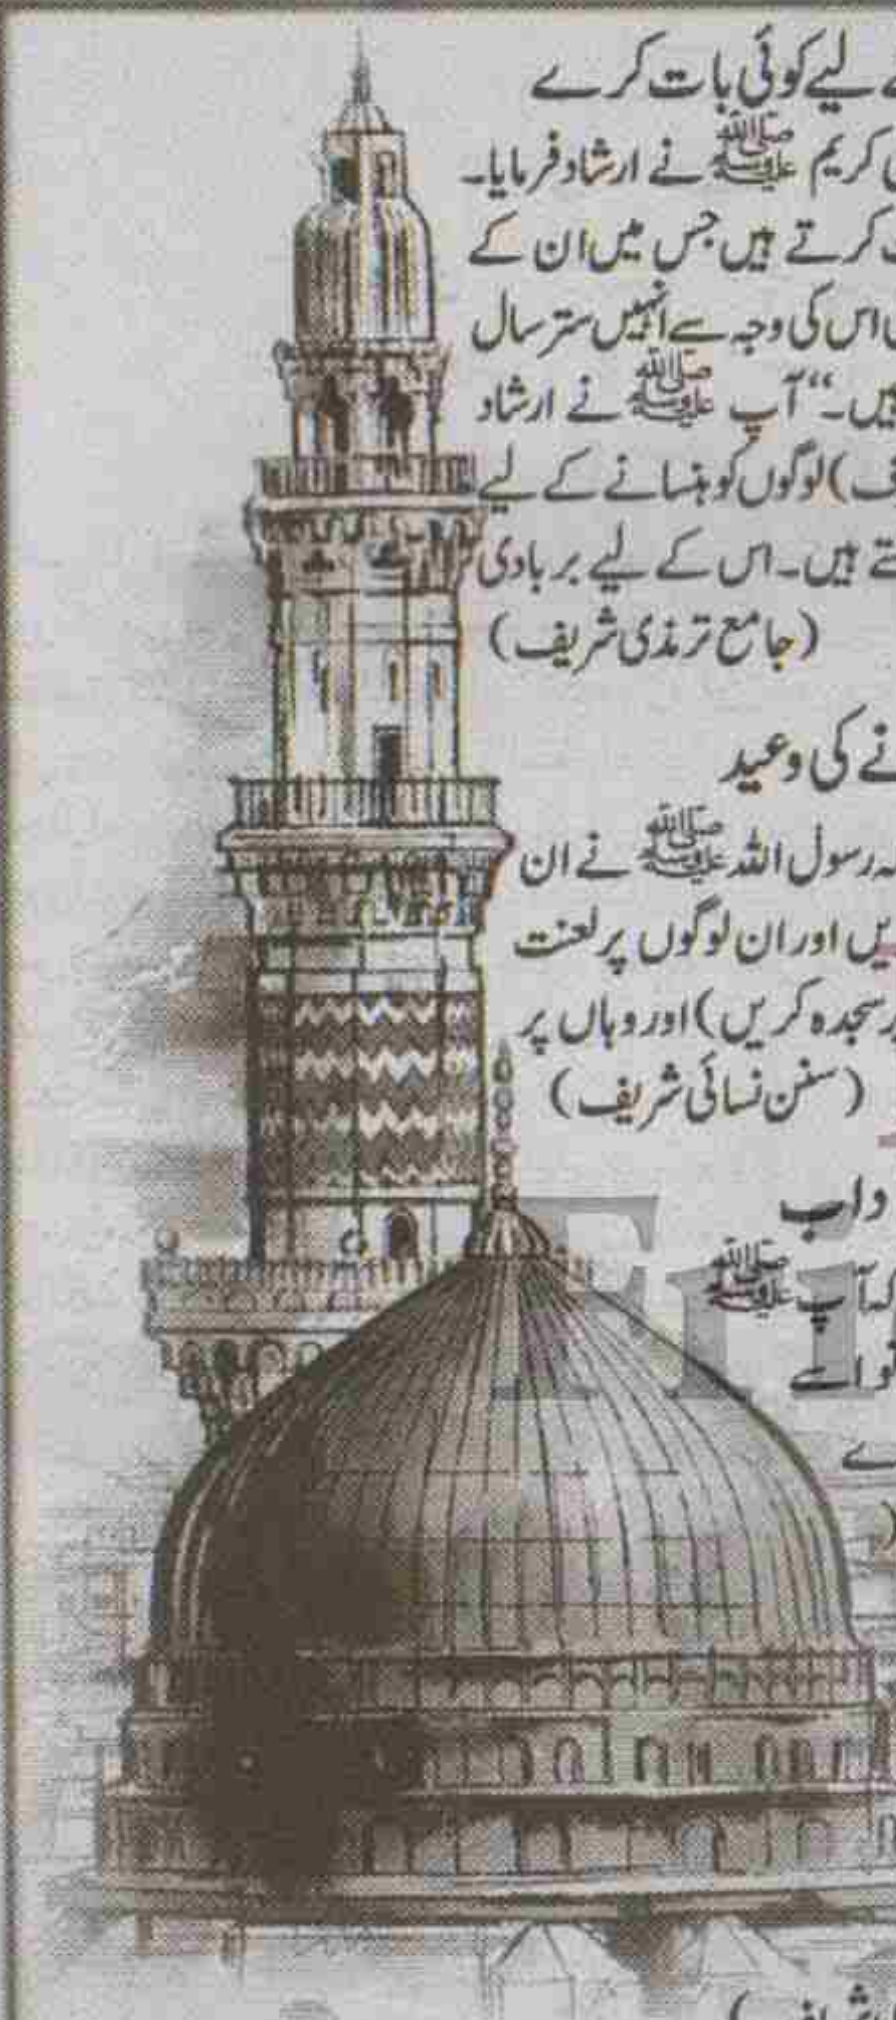 لیے کوئی بات کرے
کریم ﷺ نے ارشاد فرمایا۔
کرتے ہیں جس میں ان کے
اس کی وجہ سے انہیں ستر سال
ہیں۔“ آپ ﷺ نے ارشاد
) لوگوں کو ہنسانے کے لیے
ہیں۔ اس کے لیے بربادی
(جامع ترمذی شریف)
کی وعید
رسول اللہ ﷺ نے ان
اور ان لوگوں پر لعنت
سجدہ کریں) اور وہاں پر
(سنن نسائی شریف)
داب
آپ ﷺ
اسے